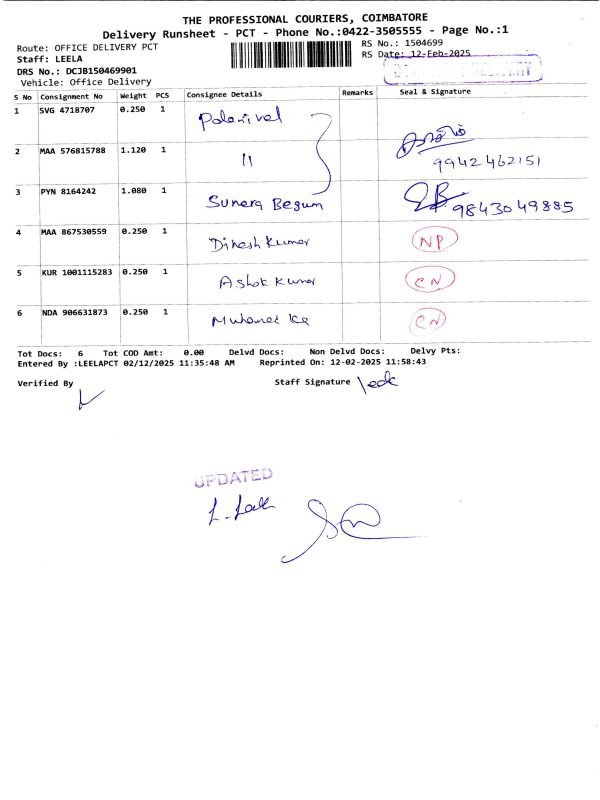 THE PROFESSIONAL COURIERS, COIMBATORE
Delivery Runsheet - PCT - Phone No.:0422-3505555 - Page No.:1
Route: OFFICE DELIVERY PCT
RS No.: 1504699
Staff: LEELA
RS Date: 12-Feb-2025
DRS No.: DCJB150469901
DELIVERY
Vehicle: Office Delivery
S No Consignment No Weight PCS Consignee Details Remarks Seal & Signature
1 SVG 4718707 0.250 1 Palanivel
2 MAA 576815788 1.120 1 11 9942462151
3 PYN 8164242 1.080 1 Sunera Begum 9843049885
4 MAA 867530559 0.250 1 Dinesh Kumar NP
5 KUR 1001115283 0.250 1 Ashok Kumar CN
6 NDA 906631873 0.250 1 CN
Tot Docs: 6 Tot COD Amt: 0.00 Delvd Docs: Non Delvd Docs: Delvy Pts:
Entered By :LEELAPCT 02/12/2025 11:35:48 AM Reprinted On: 12-02-2025 11:58:43
Verified By Staff Signature
UPDATED